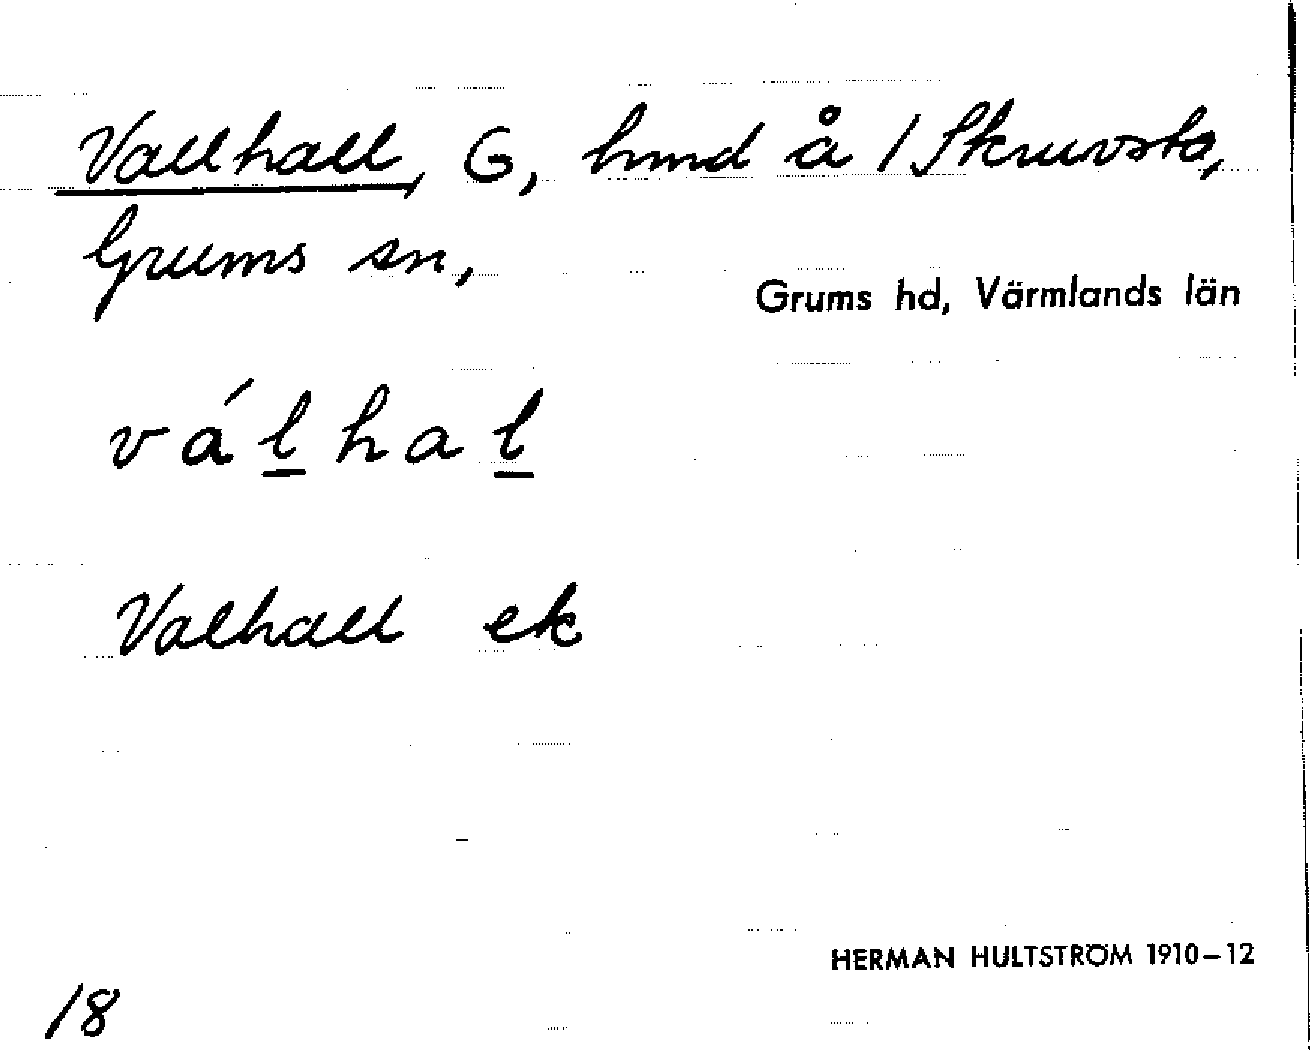 Vallhall, G, hmd å 1 Skruvsta,
Grums sn,
Grums hd, Värmlands län
vál̲hal̲
Valhall ek
HERMAN HULTSTRÖM 1910–12
18